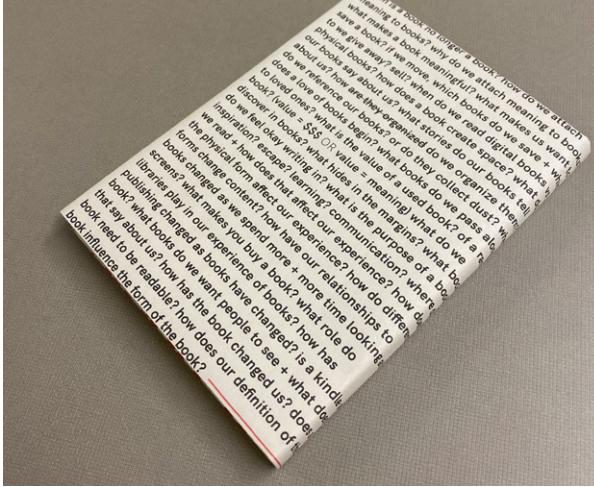 is a book no longer a book? how do we attach
meaning to books? why do we attach meaning to book
what makes a book meaningful? what makes us want
save a book? if we move, which books do we save +
to we give away? sell? when do we read digital books
physical books? how does a book create space? what
our books say about us? what stories do our books
about us? how are they organized do we organize them
do we reference our books? or to they collect dust?
does a love of books begin? what books do we pass
to loved ones? what is the value of a used book? of a
book? (value = $$$ OR value = meaning) what do we
discover in books? what hides in the margins? what bo
do we feel okay writing in? what is the purpose of a bo
inspiration? escape? learning? communication? where
we read + how does that affect our experience? how do
the physical form effect our experience? how do differe
forms change content? how have our relationships to
books changed as we spend more + more time looking
screens? what makes you buy a book? what role do
libraries play in our experience of books? how has
publishing changed as books have changed? is a kindle
book? what books do we want people to see + what do
that say about us? how has the book changed us? does
book need to be readable? how does our definition of
book influence the form of the book?